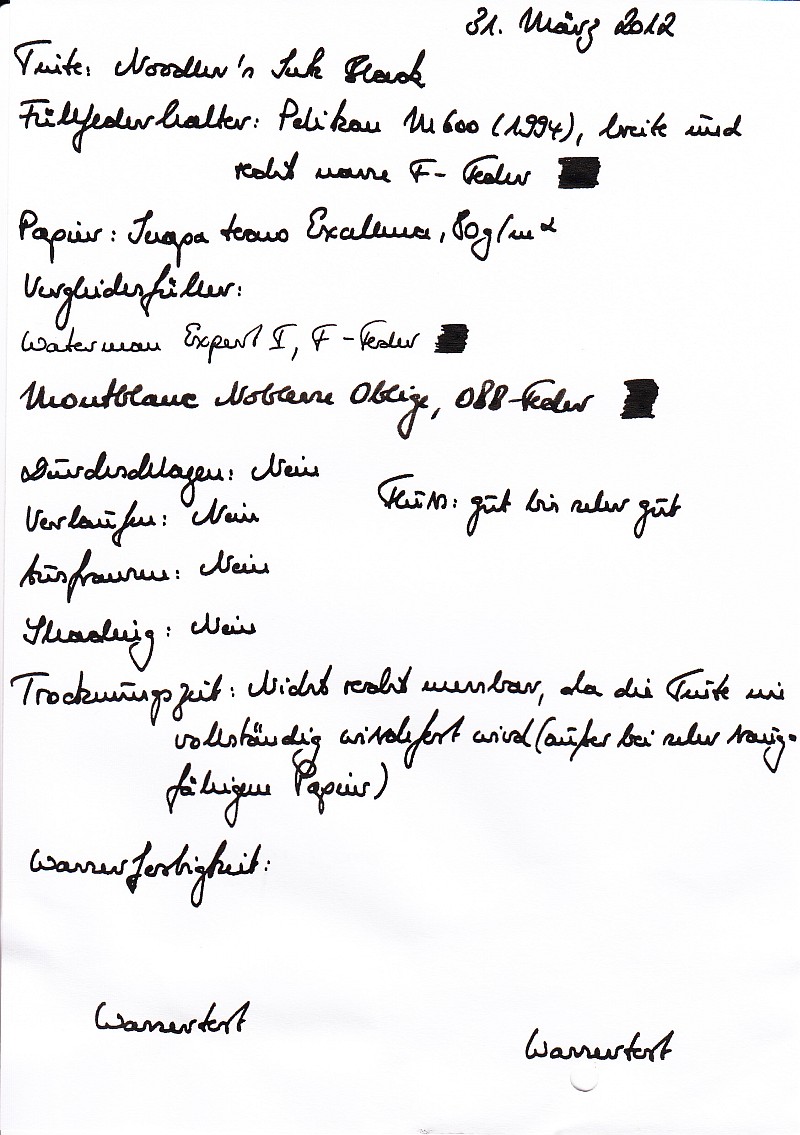 31. März 2012
Tinte: Noodler's Ink Black
Füllfederhalter: Pelikan M600 (1994), breite und
recht nasse F-Feder
Papier: Inapa tecno Excellence, 80g/m²
Vergleichsfüller:
Waterman Expert I, F-Feder
Montblanc Noblesse Oblige, OBB-Feder
Durchschlagen: Nein
Fluss: gut bis sehr gut
Verlaufen: Nein
Ausfransen: Nein
Shading: Nein
Trocknungszeit: Nicht recht messbar, da die Tinte nie
vollständig wischfest wird (außer bei sehr saug-
fähigem Papier)
Wasserfestigkeit:
Wassertest
Wassertest